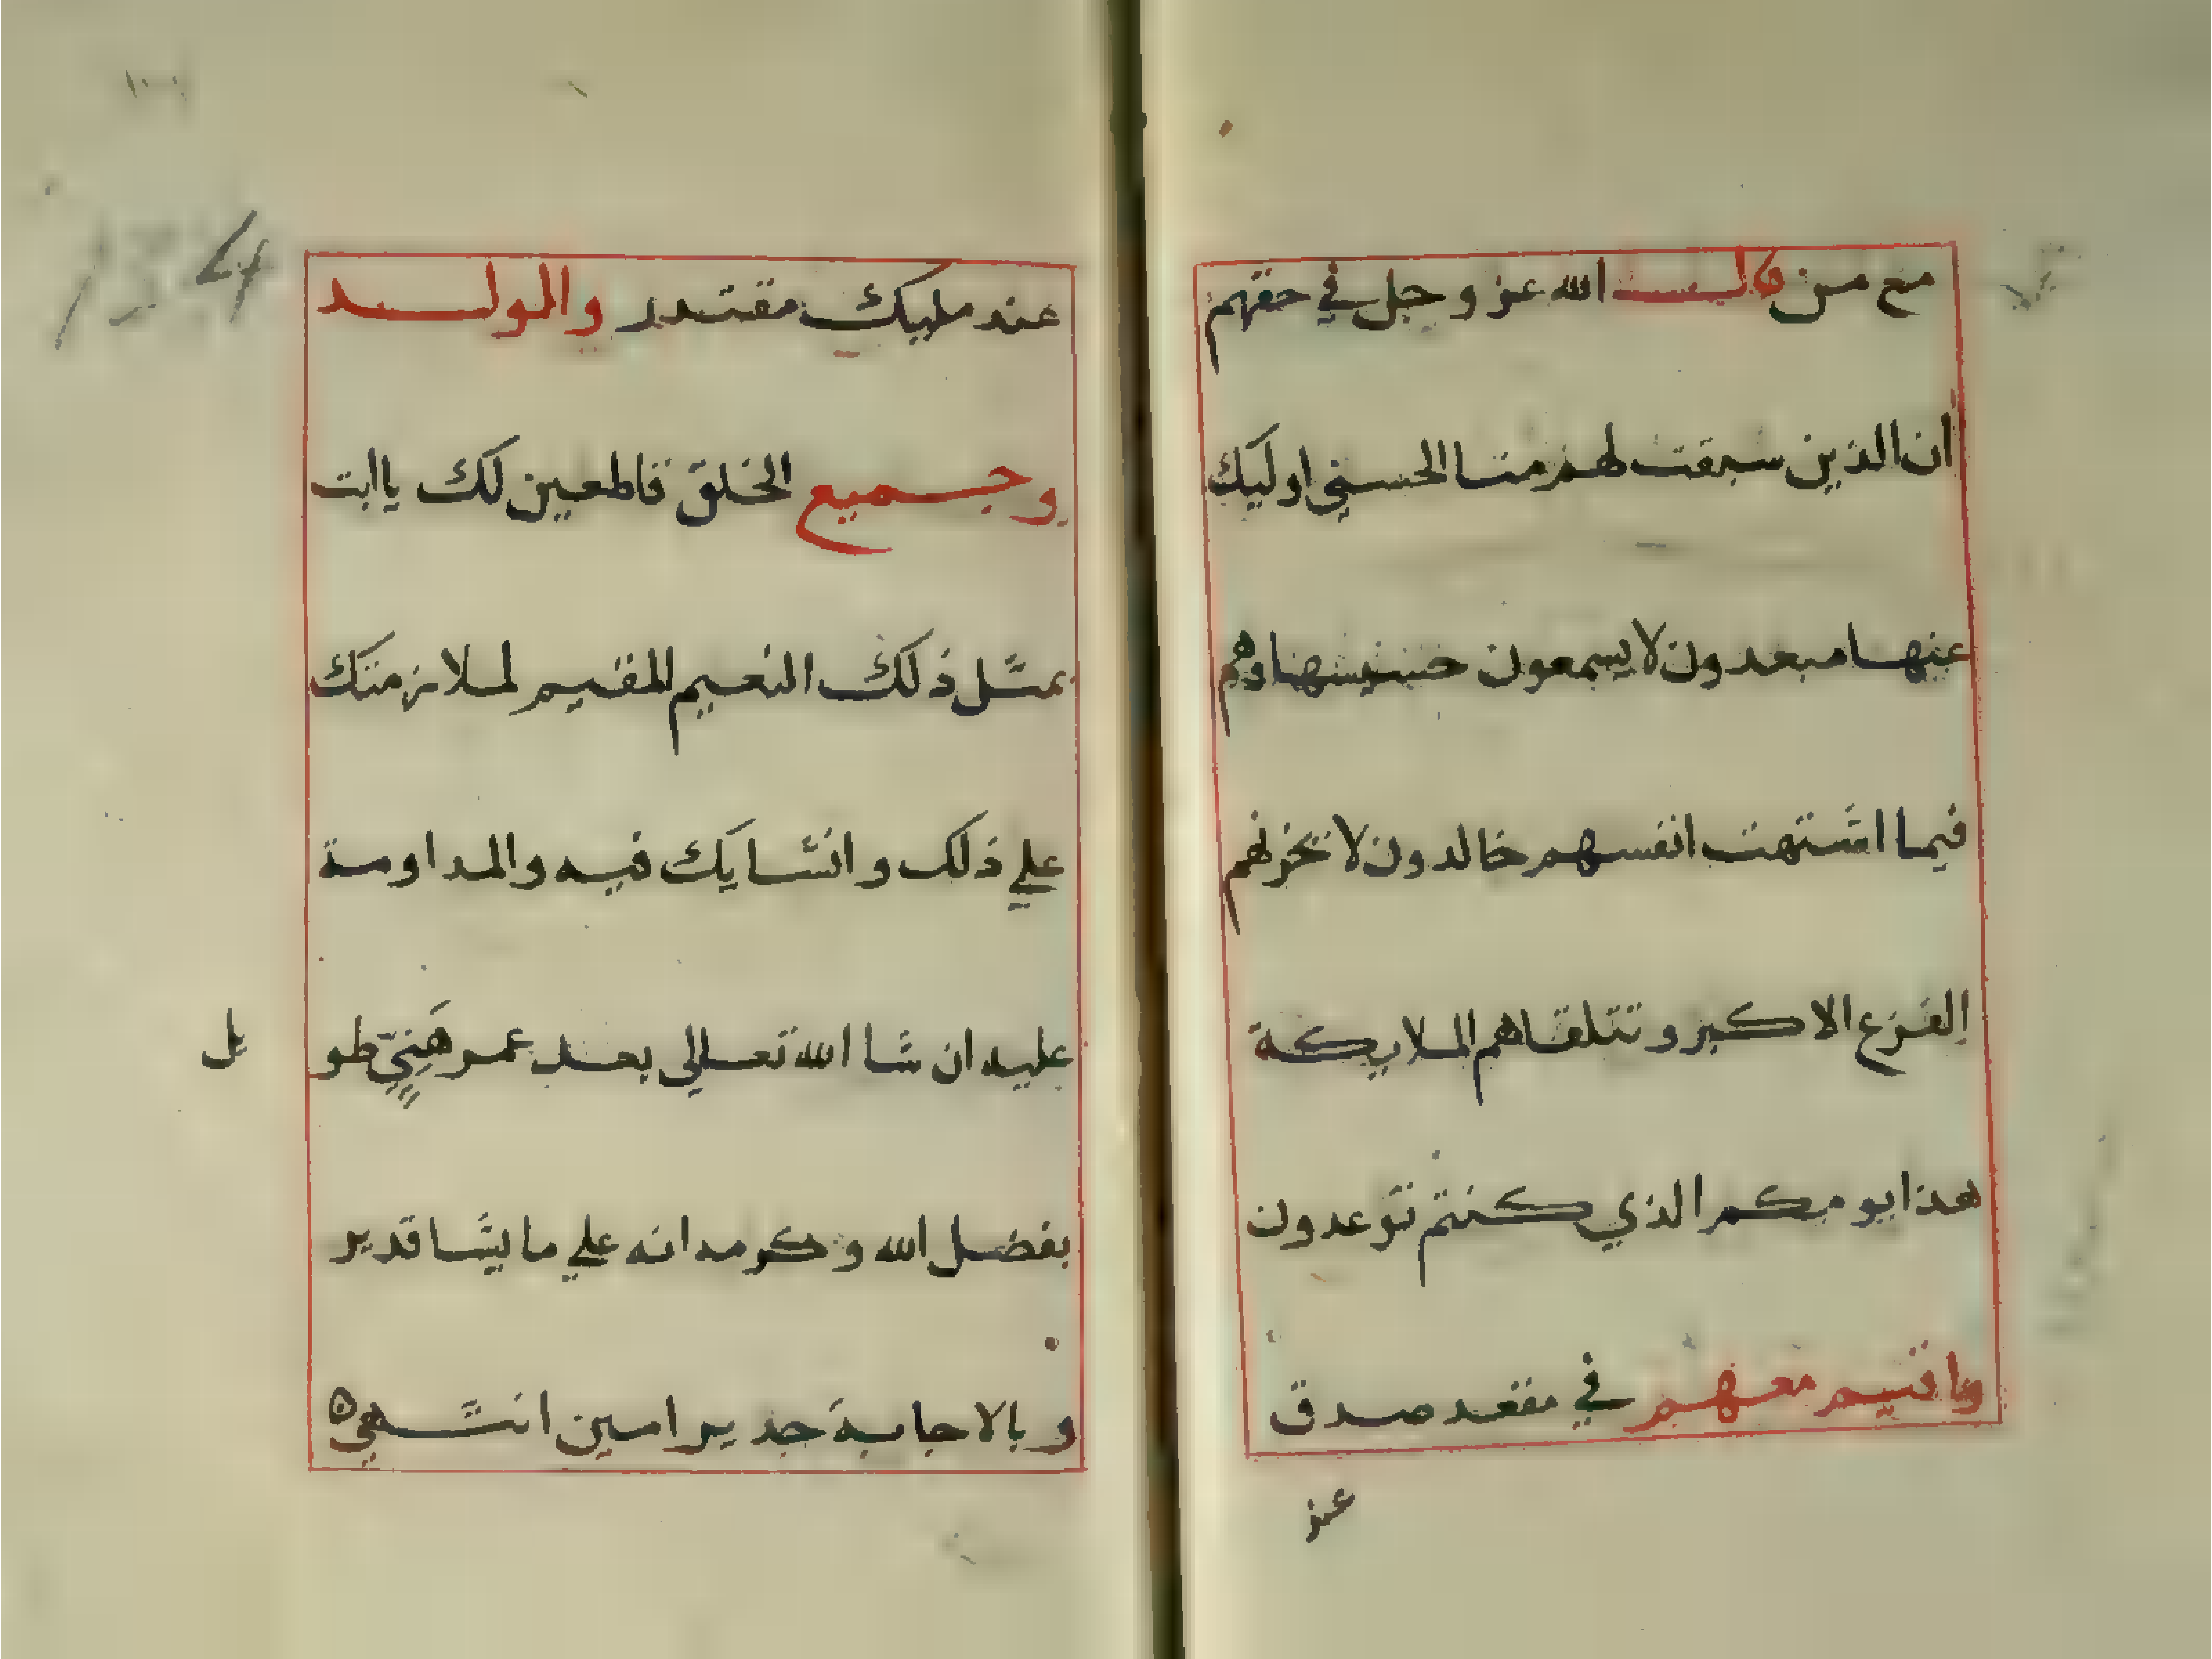 مع من قال الله عز وجل في حقهم
ان الذين سبقت لهم منا الحسني اوليك
عنها مبعدون لا يسمعون حسيسها وهم
فيما اشتهت انفسهم خالدون لا يحزنهم
الفزع الاكبر وتتلقاهم الملايكة
هذا يومكم الذي كنتم توعدون
واقيم معهم في مقعد صدق
عند
134
عند مليك مقتدر والولد
وجميع الخلق فالمعين لك يا ابت
بمثل ذلك النعيم المقيم لملازمتك
علي ذلك وانشايك فيه والمداومة
عليه ان شا الله تعالى بعد عمر هَنِيٍّ طويل
بفضل الله وكرمه انه علي ما يشا قدير
وبالاجابة جدير امين انتهي ه